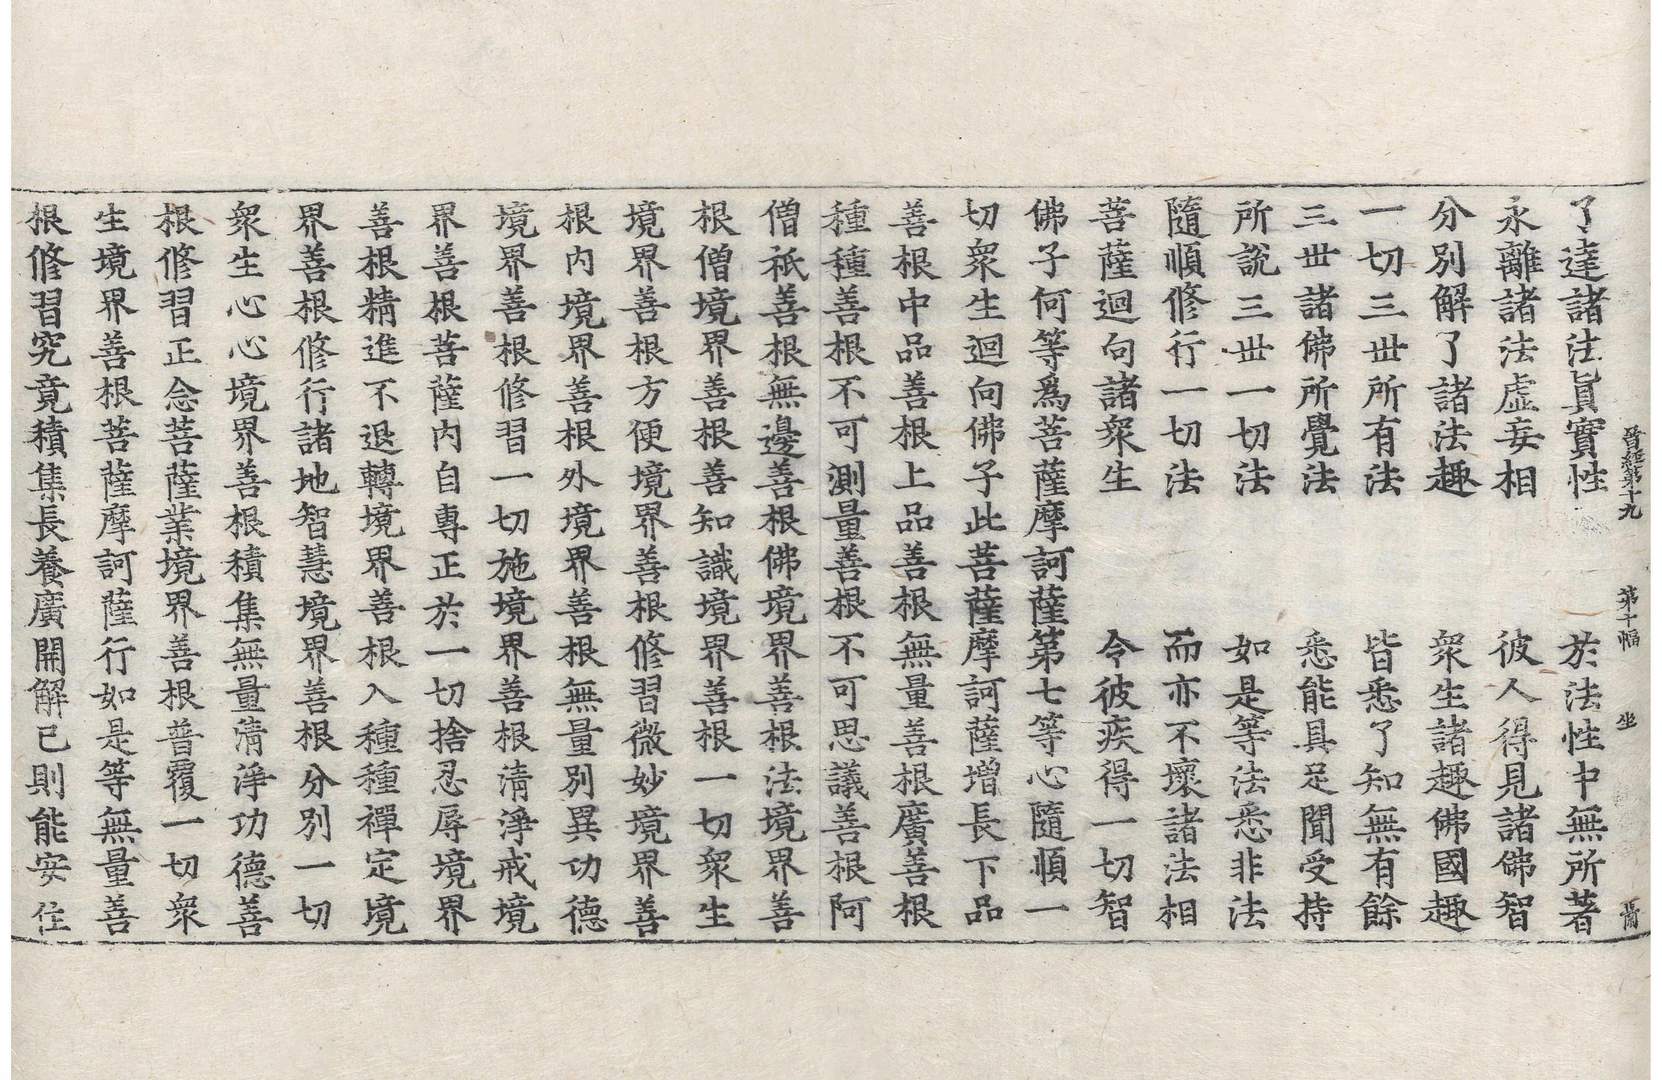 晉經第十九 第十幅 坐
了達諸法眞實性 於法性中無所著
永離諸法虛妄相 彼人得見諸佛智
分別解了諸法趣 衆生諸趣佛國趣
一切三世所有法 皆悉了知無有餘
三世諸佛所覺法 悉能具足聞受持
所說三世一切法 如是等法悉非法
隨順修行一切法 而亦不壞諸法相
菩薩迴向諸衆生 令彼疾得一切智
佛子何等爲菩薩摩訶薩第七等心隨順一
切衆生迴向佛子此菩薩摩訶薩增長下品
善根中品善根上品善根無量善根廣善根
種種善根不可測量善根不可思議善根阿
僧祇善根無邊善根佛境界善根法境界善
根僧境界善根善知識境界善根一切衆生
境界善根方便境界善根修習微妙境界善
根內境界善根外境界善根無量別異功德
境界善根修習一切施境界善根清淨戒境
界善根菩薩內自專正於一切捨忍辱境界
善根精進不退轉境界善根入種種禪定境
界善根修行諸地智慧境界善根分別一切
衆生心心境界善根積集無量清淨功德善
根修習正念菩薩業境界善根普覆一切衆
生境界善根菩薩摩訶薩行如是等無量善
根修習究竟積集長養廣開解已則能安住